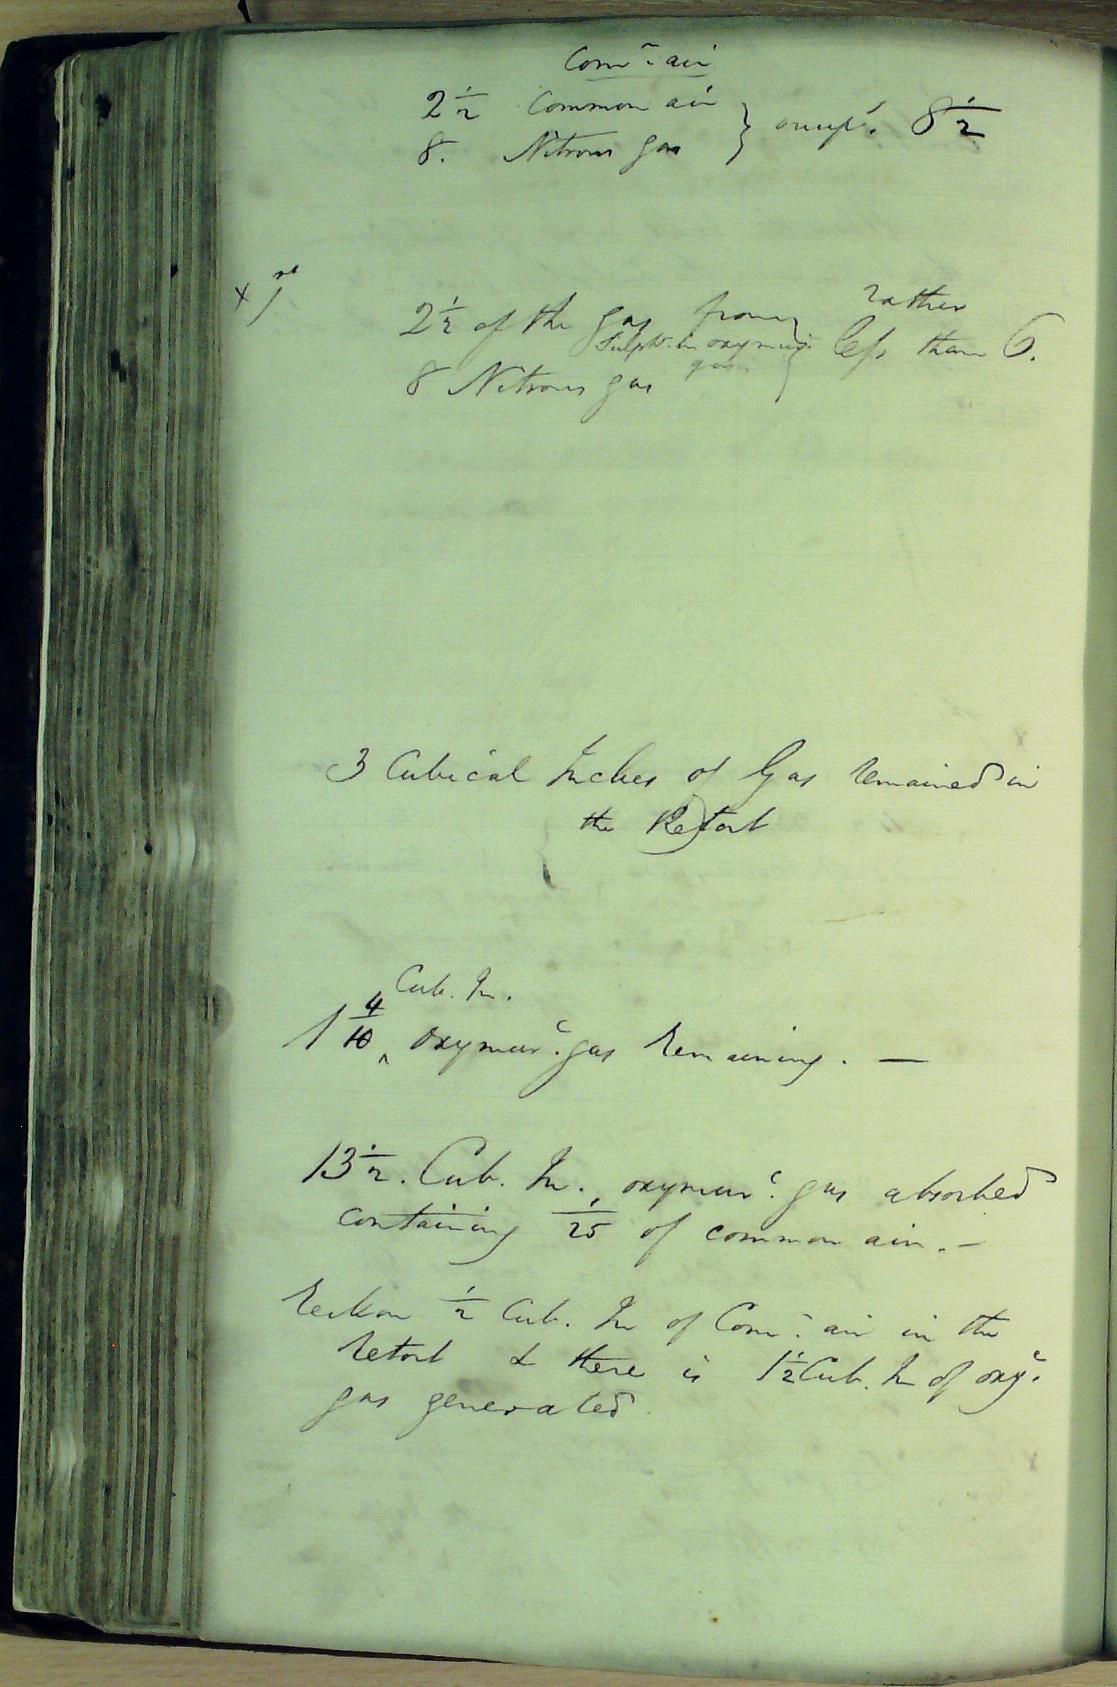 Comn. air
2 1/2 Common air } occupd. 8 1/2
8. Nitrous gas
x 1st
2 1/2 of the gas from } rather
Sulphr. in oxymurc. less than 6.
gas
8 Nitrous gas
3 Cubical Inches of Gas remained in
the Retort
Cub. In.
1 4/10 ^ oxymurc. gas remaining. —
13 1/2. Cub. In., oxymurc. gas absorbed
containing 1/25 of common air. —
Reckon 1/2 Cub. In of Comn. air in the
retort & there is 1 1/2 Cub. In of oxyc.
gas generated